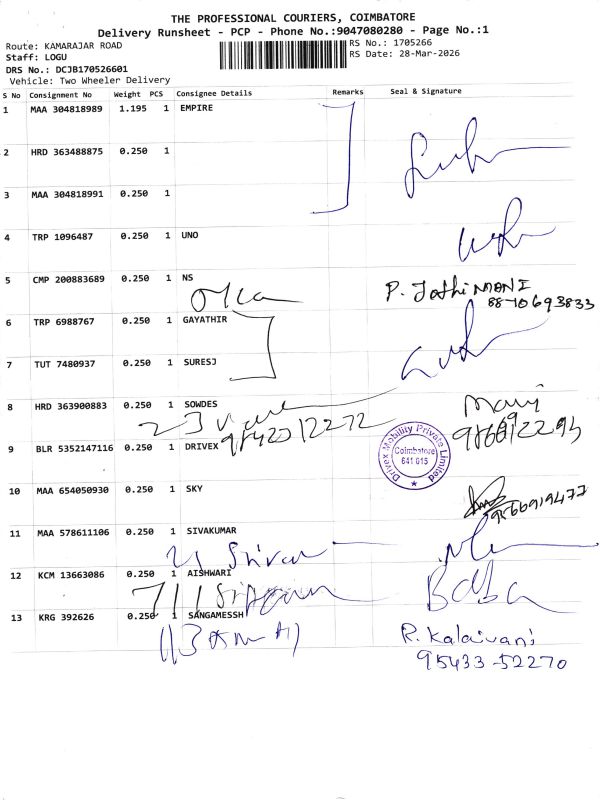 THE PROFESSIONAL COURIERS, COIMBATORE
Delivery Runsheet - PCP - Phone No.:9047080280 - Page No.:1
Route: KAMARAJAR ROAD
RS No.: 1705266
Staff: LOGU
RS Date: 28-Mar-2026
DRS No.: DCJB170526601
Vehicle: Two Wheeler Delivery
S No Consignment No Weight PCS Consignee Details Remarks Seal & Signature
1 MAA 304818989 1.195 1 EMPIRE
2 HRD 363488875 0.250 1
3 MAA 304818991 0.250 1
4 TRP 1096487 0.250 1 UNO
5 CMP 200883689 0.250 1 NS
P. Jothi MANI
8870693833
6 TRP 6988767 0.250 1 GAYATHIR
7 TUT 7480937 0.250 1 SURESJ
8 HRD 363900883 0.250 1 SOWDES
9 BLR 5352147116 0.250 1 DRIVEX
Drivex Mobility Private Limited
Coimbatore
641 015
10 MAA 654050930 0.250 1 SKY
9566919477
11 MAA 578611106 0.250 1 SIVAKUMAR
12 KCM 13663086 0.250 1 AISHWARI
13 KRG 392626 0.250 1 SANGAMESSH
R. Kalaivani
95433-52270